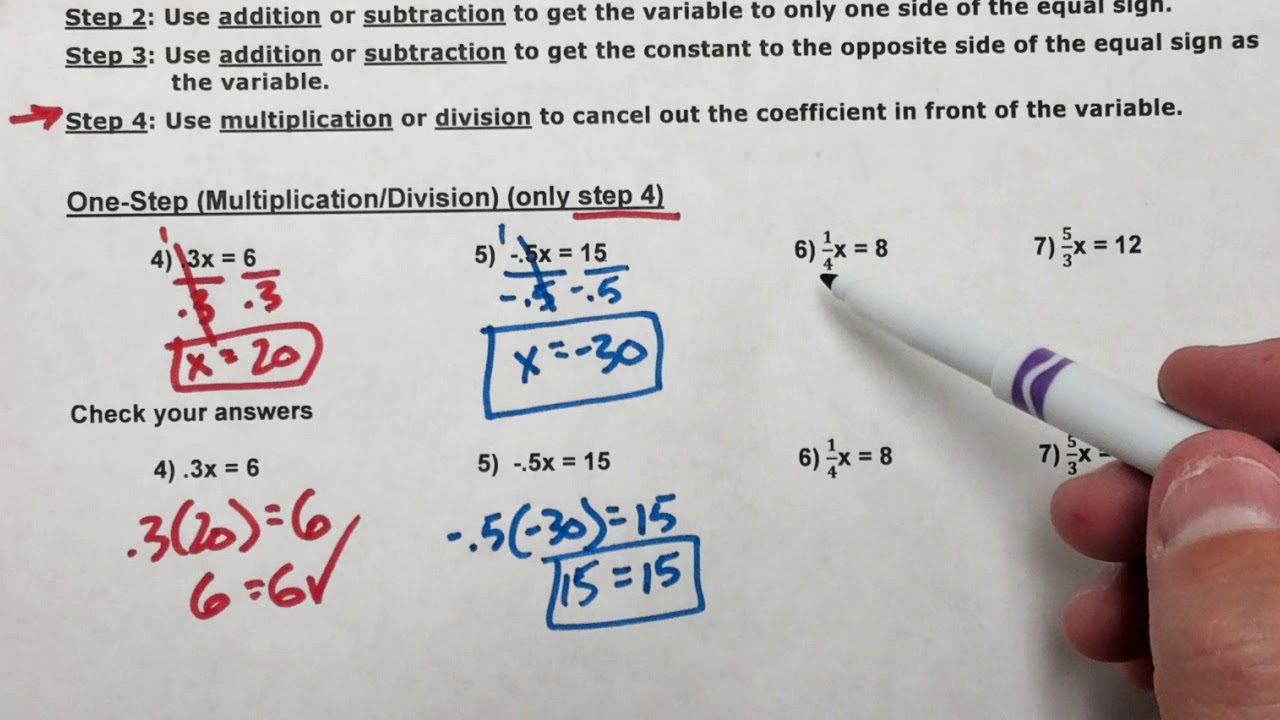 Step 2: Use addition or subtraction to get the variable to only one side of the equal sign.
Step 3: Use addition or subtraction to get the constant to the opposite side of the equal sign as
the variable.
Step 4: Use multiplication or division to cancel out the coefficient in front of the variable.
One-Step (Multiplication/Division) (only step 4)
4) .3x = 6
1
.3 .3
x = 20
5) -.5x = 15
1
-.5 -.5
x = -30
6) 1/4x = 8
7) 5/3x = 12
Check your answers
4) .3x = 6
.3(20) = 6
6 = 6✓
5) -.5x = 15
-.5(-30) = 15
15 = 15
6) 1/4x = 8
7) 5/3x